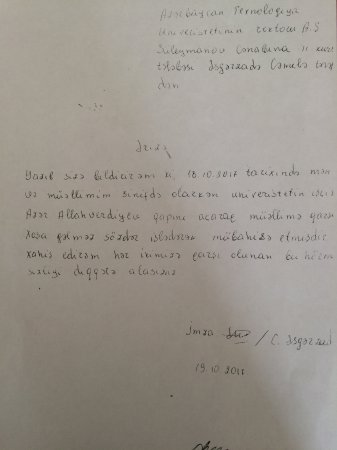 Azərbaycan Texnologiya
Universitetinin rektoru
Suleymanov Cənabına II kurs
tələbəsi Əsgərzadə Camalə tərəfin
dən
Ərizə
Yazıb sizə bildirirəm ki, 18.10.2017 tarixində mən
və müəllimim sinifdə olarkən universitetin işçisi
Azər Allahverdiyev qapını açaraq müəllimə qarşı
xoşa gəlməz sözlər işlədərək mübahisə etmişdir.
Xahiş edirəm hər ikimizə qarşı olunan bu hörmət
sizliyi diqqətə alasınız
İmza / C. Əsgərzad
19.10.2017